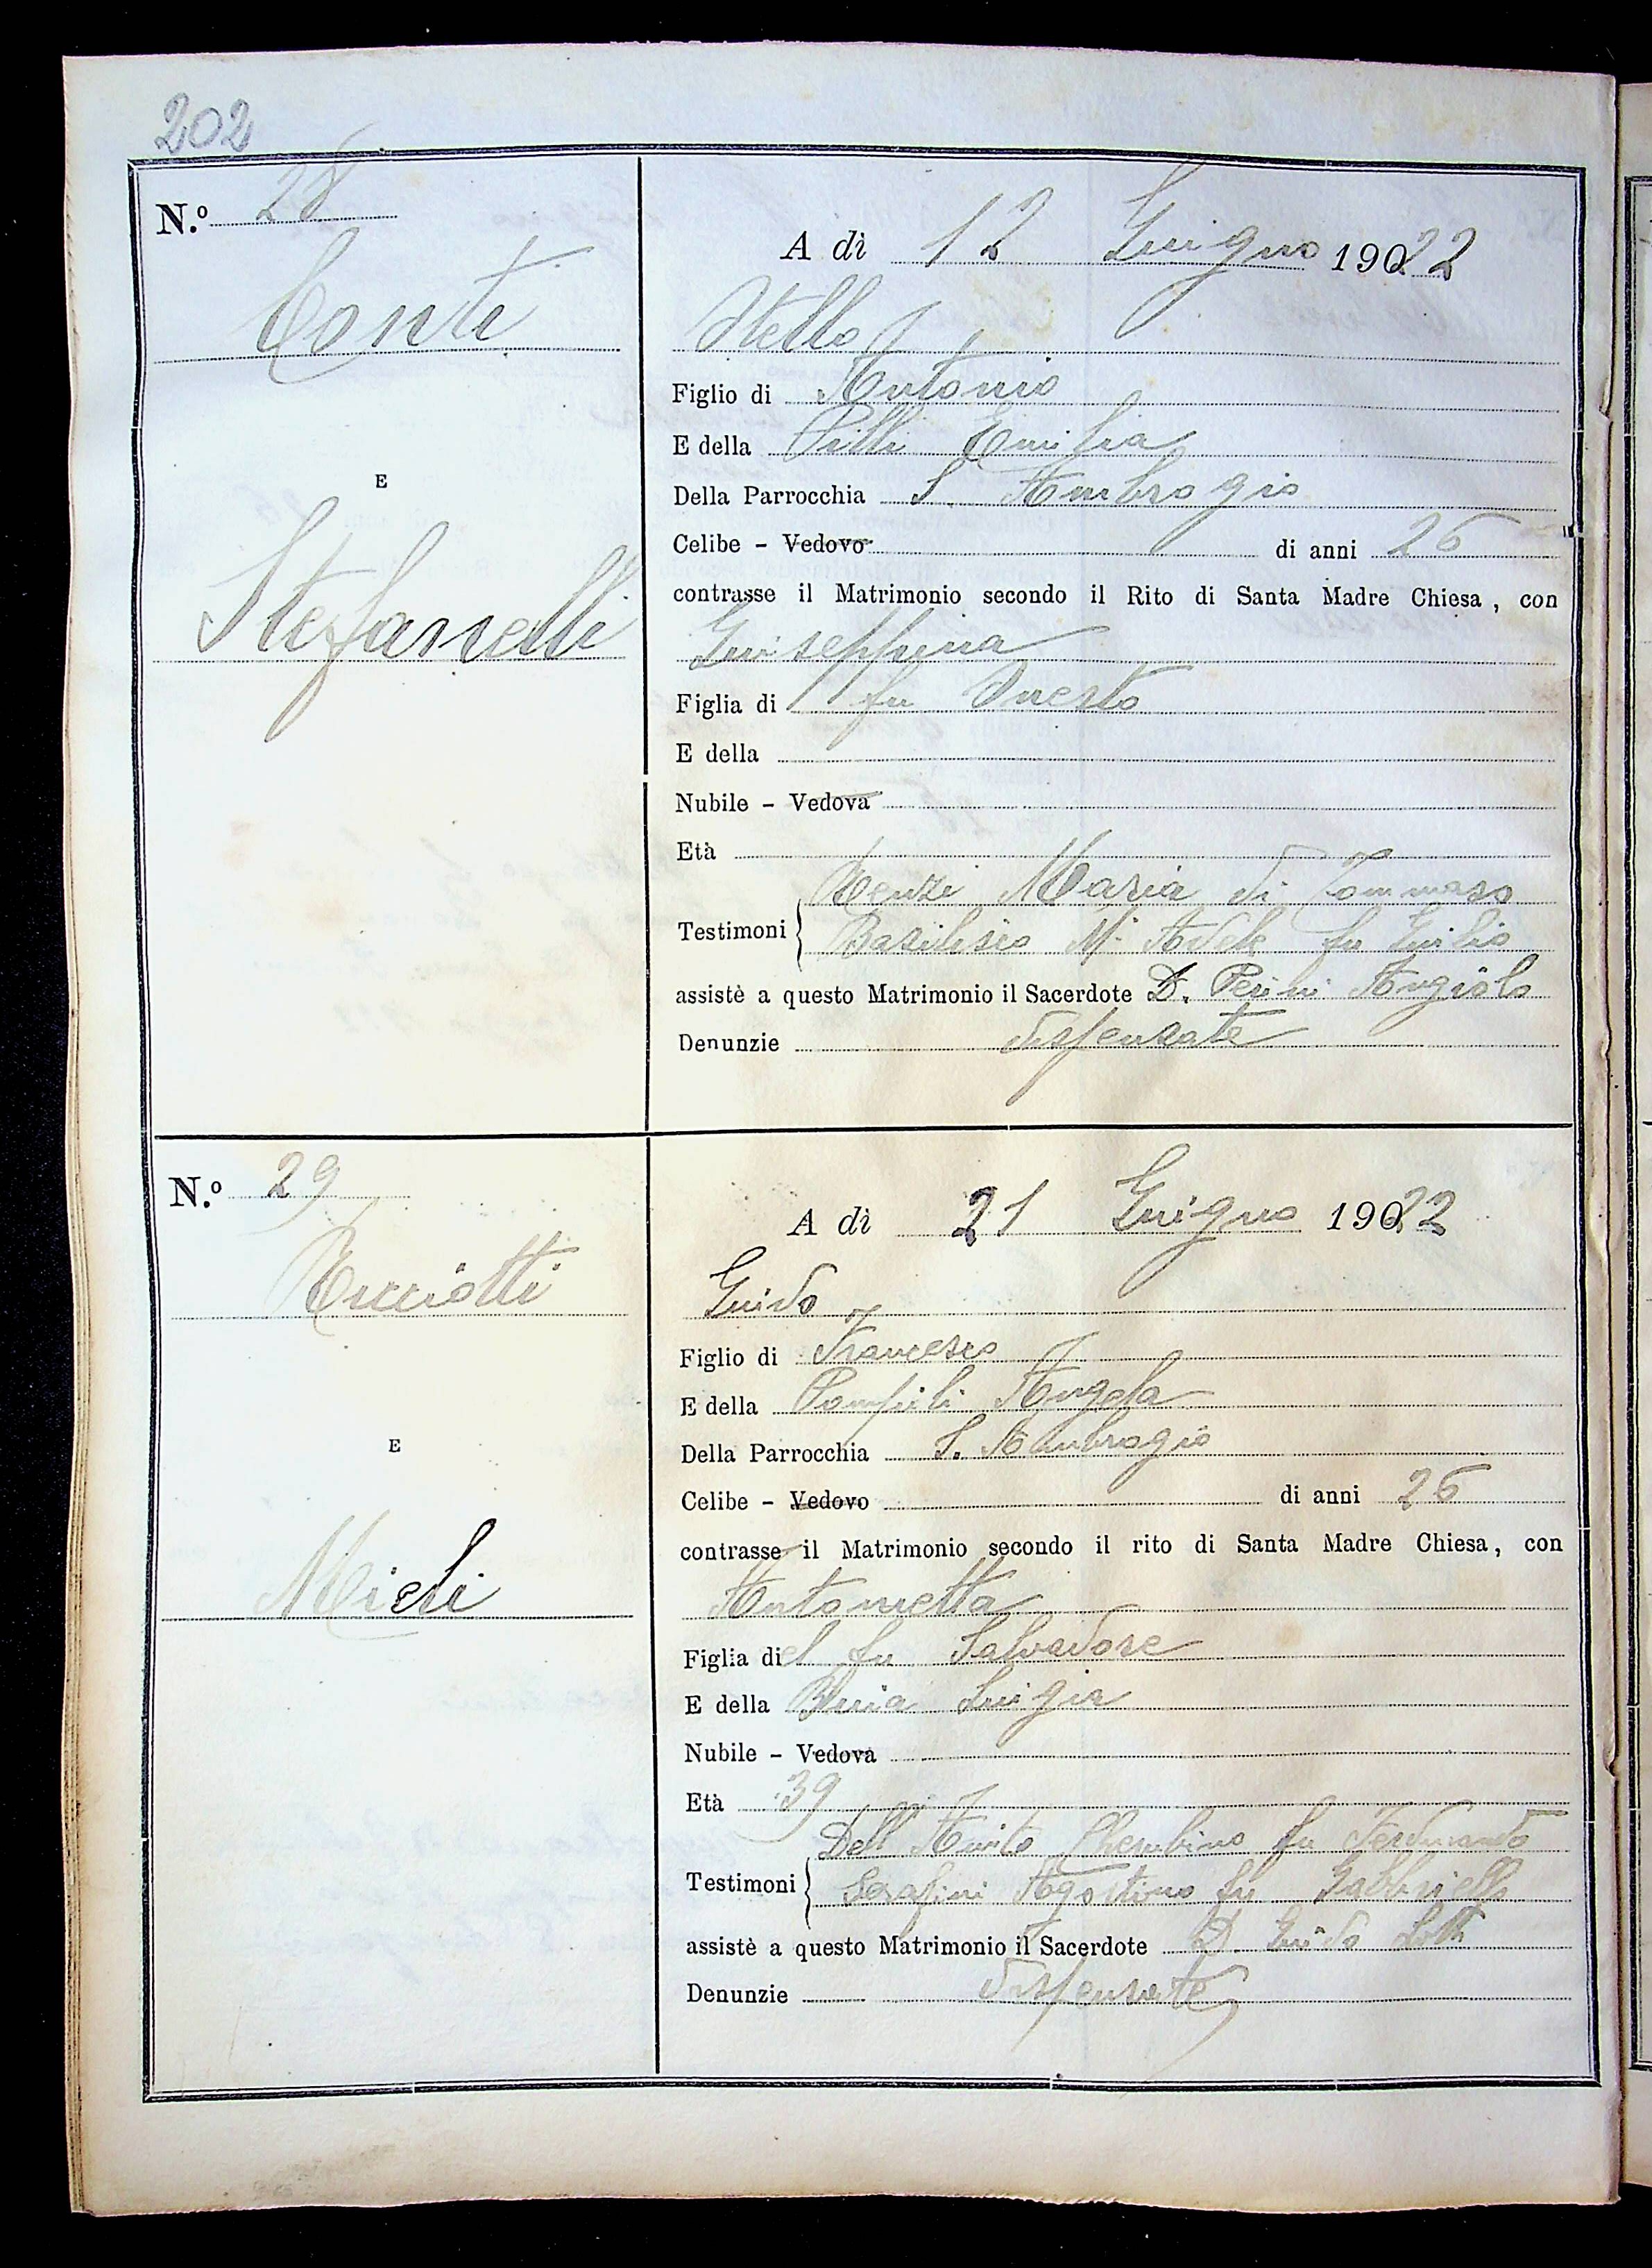 202
N.º 28
Conti
E
Stefanelli
A dì 12 Giugno 1922
Stello
Figlio di Antonio
E della Pilli Emilia
Della Parrocchia S. Ambrogio
Celibe - Vedovo di anni 26
contrasse il Matrimonio secondo il Rito di Santa Madre Chiesa, con
Giuseppina
Figlia di fu Onesto
E della
Nubile - Vedova
Età
Testimoni Renzi Maria di Tommaso
M. Adele fu Giulio
assistè a questo Matrimonio il Sacerdote D. Perini Angiolo
Denunzie dispensate
N.º 29
Ricciotti
E
Micli
A dì 21 Giugno 1922
Guido
Figlio di Francesco
E della Pompili Angela
Della Parrocchia S. Ambrogio
Celibe - Vedovo di anni 26
contrasse il Matrimonio secondo il rito di Santa Madre Chiesa, con
Antonietta
Figlia del fu Salvadore
E della Luigia
Nubile - Vedova
Età 39
Testimoni Dell' Cherubino fu Ferdinando
Serafini Agostino fu Gabbriello
assistè a questo Matrimonio il Sacerdote D. Guido Lotti
Denunzie dispensate